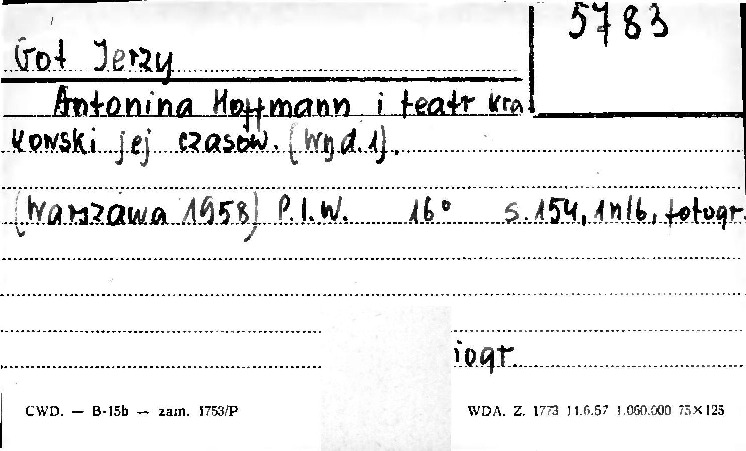 5783
Got Jerzy
Antonina Hoffmann i teatr kra
kowski jej czasów. (Wyd.1).
(Warszawa 1958) P.I.W. 16° s.154, 1nlb, fotogr.
iogr.
CWD. — B-15b — zam. 1753/P
WDA. Z. 1773 11.6.57 1.060.000 75×125